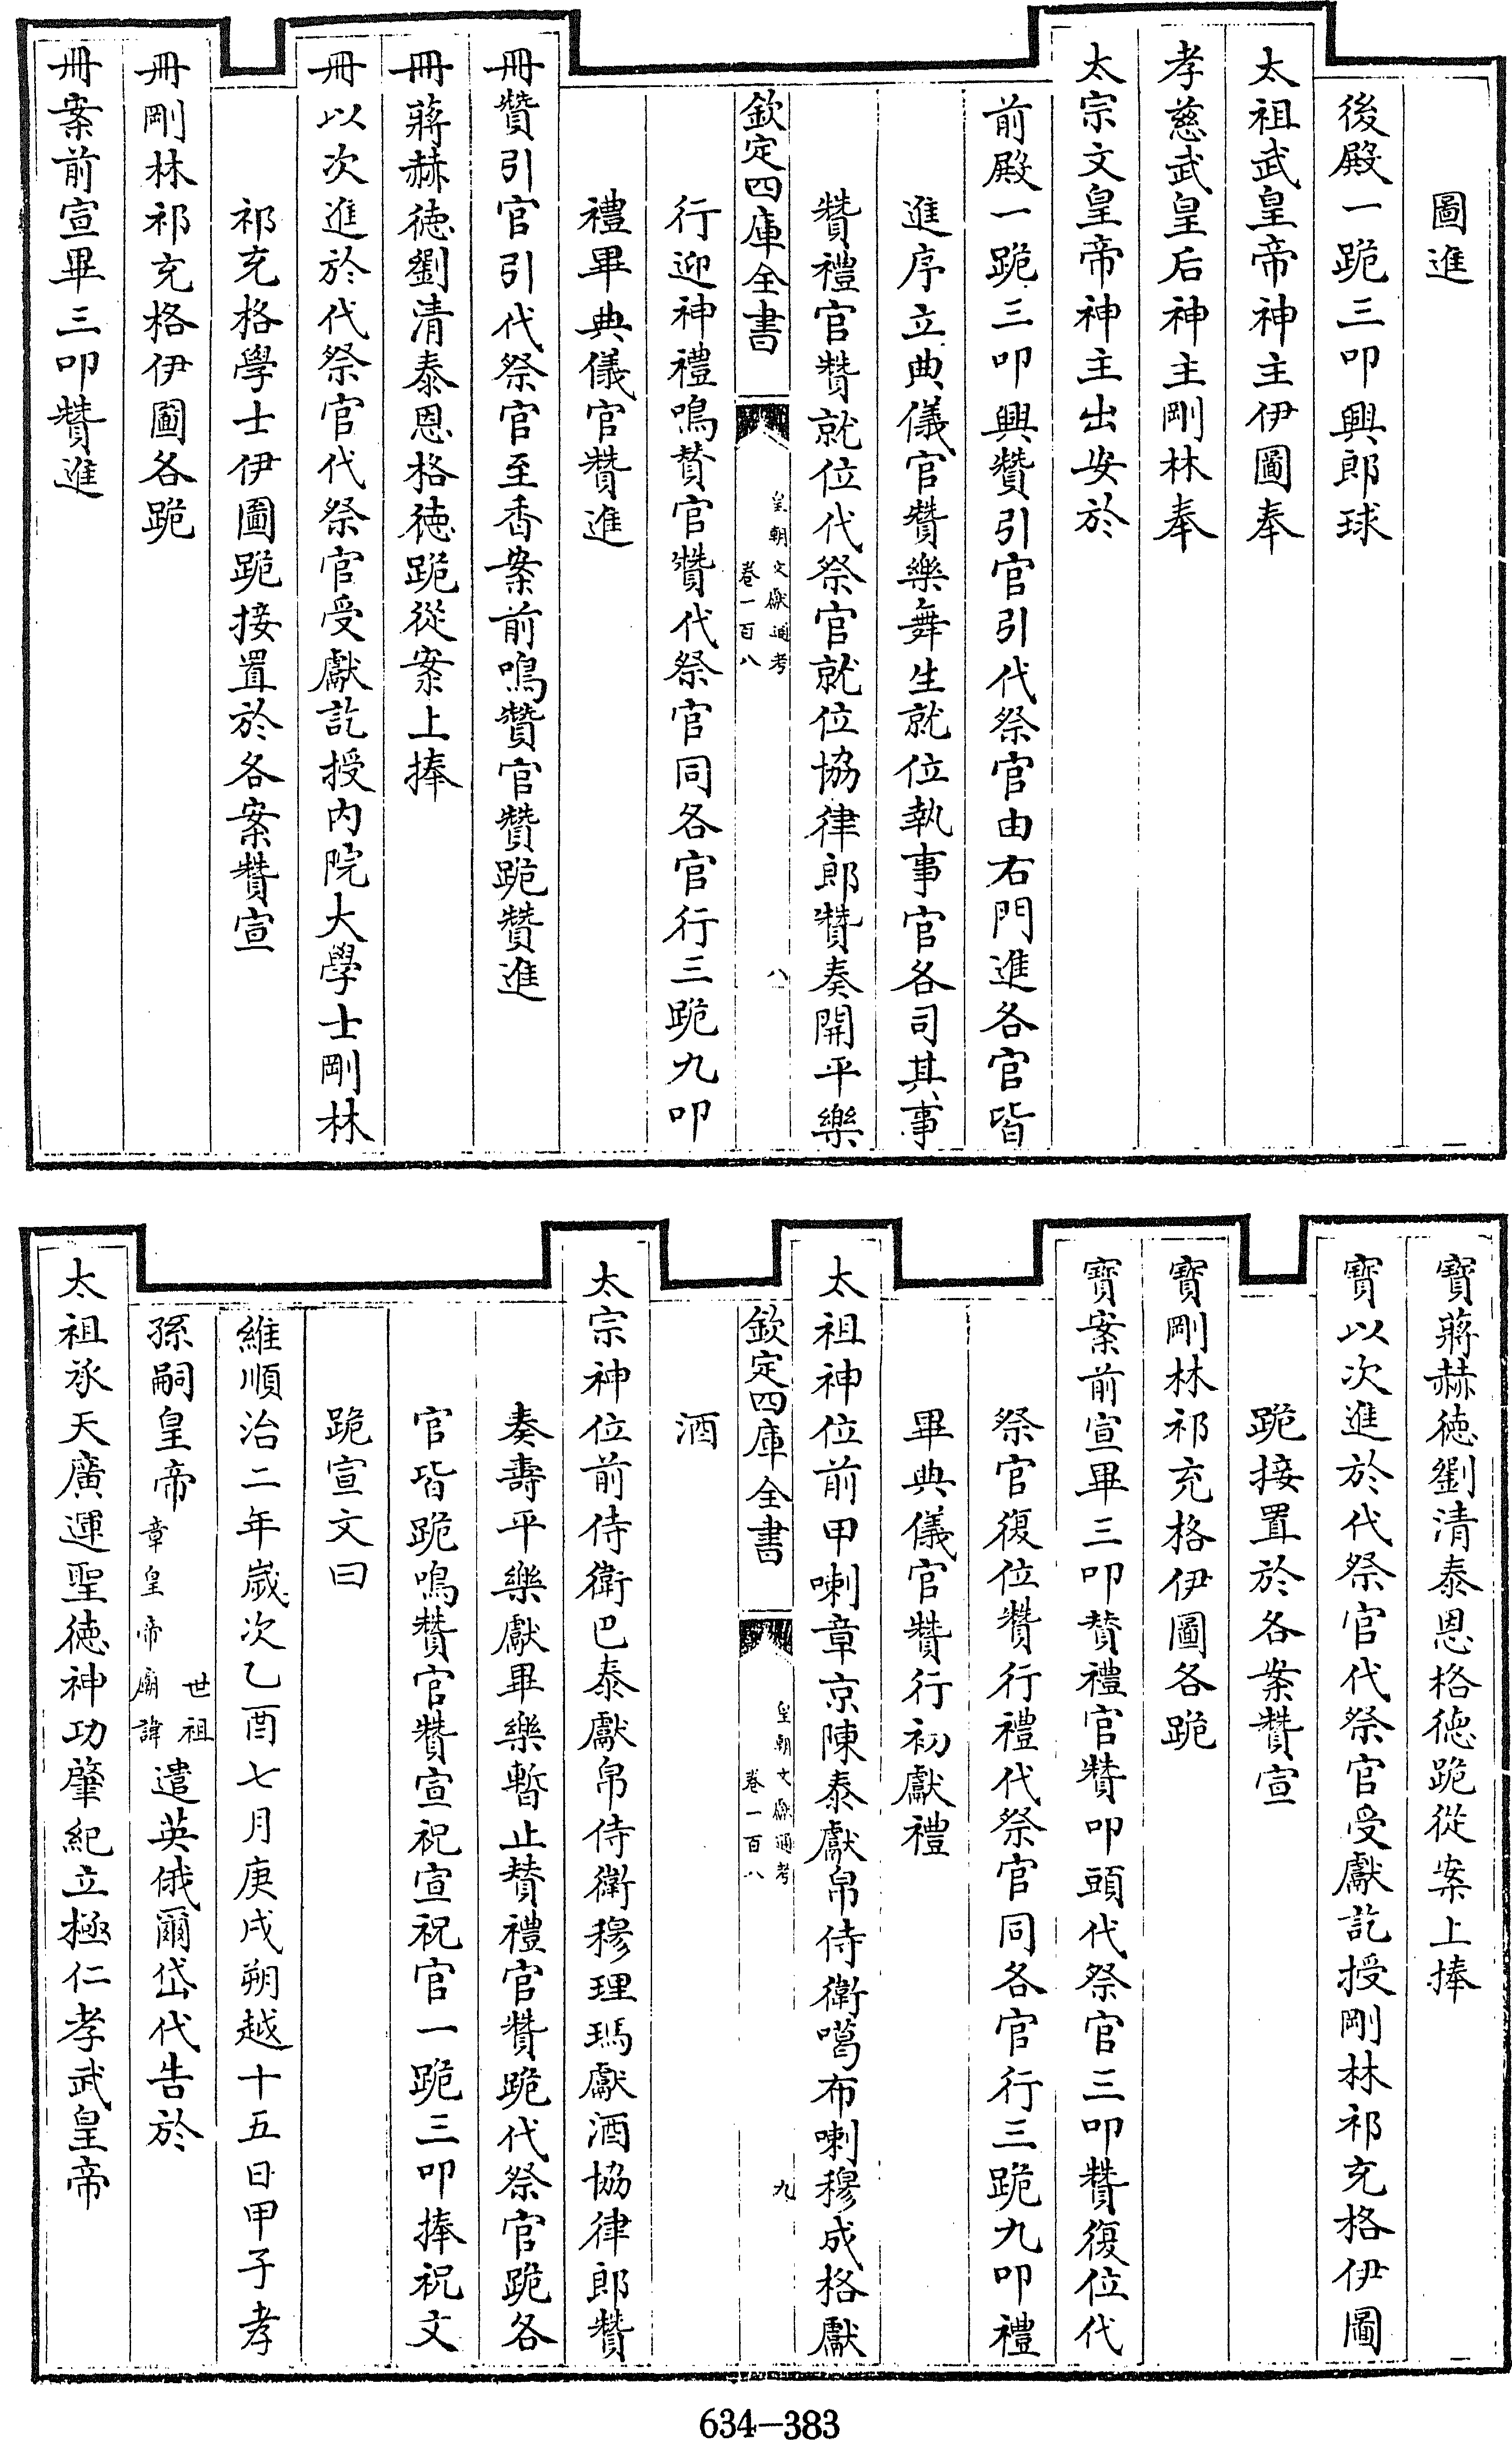 圖進
後殿一跪三叩興郎球
太祖武皇帝神主伊圖奉
孝慈武皇后神主剛林奉
太宗文皇帝神主出安於
前殿一跪三叩興贊引官引代祭官由右門進各官皆
進序立典儀官贊樂舞生就位執事官各司其事
贊禮官贊就位代祭官就位協律郎贊奏開平樂
欽定四庫全書
皇朝文獻通考
卷一百八
八
行迎神禮鳴贊官贊代祭官同各官行三跪九叩
禮畢典儀官贊進
冊贊引官引代祭官至香案前鳴贊官贊跪贊進
冊蔣赫德劉清泰恩格德跪從案上捧
冊以次進於代祭官代祭官受獻訖授內院大學士剛林
祁充格學士伊圖跪接置於各案贊宣
冊剛林祁充格伊圖各跪
冊案前宣畢三叩贊進
寶蔣赫德劉清泰恩格德跪從案上捧
寶以次進於代祭官代祭官受獻訖授剛林祁充格伊圖
跪接置於各案贊宣
寶剛林祁充格伊圖各跪
寶案前宣畢三叩贊禮官贊叩頭代祭官三叩贊復位代
祭官復位贊行禮代祭官同各官行三跪九叩禮
畢典儀官贊行初獻禮
太祖神位前甲喇章京陳泰獻帛侍衛噶布喇穆成格獻
欽定四庫全書
皇朝文獻通考
卷一百八
九
酒
太宗神位前侍衛巴泰獻帛侍衛穆理瑪獻酒協律郎贊
奏壽平樂獻畢樂暫止贊禮官贊跪代祭官跪各
官皆跪鳴贊官贊宣祝宣祝官一跪三叩捧祝文
跪宣文曰
維順治二年歲次乙酉七月庚戌朔越十五日甲子孝
孫嗣皇帝世祖章皇帝廟諱遣英俄爾岱代告於
太祖承天廣運聖德神功肇紀立極仁孝武皇帝
634-383